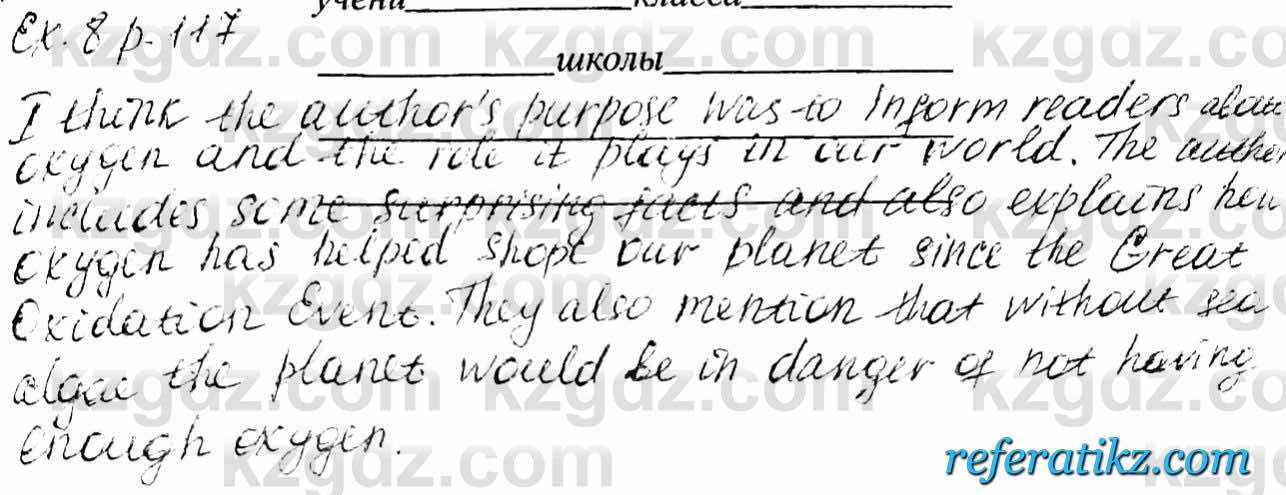 учени класса
Ex. 8 p. 117
школы
I think the author's purpose was to inform readers about
oxygen and the role it plays in our world. The author
includes some surprising facts and also explains how
oxygen has helped shope our planet since the Great
Oxidation Event. They also mention that without sea
algae the planet would be in danger of not having
enough oxygen.
kzgdz.com
referatikz.com